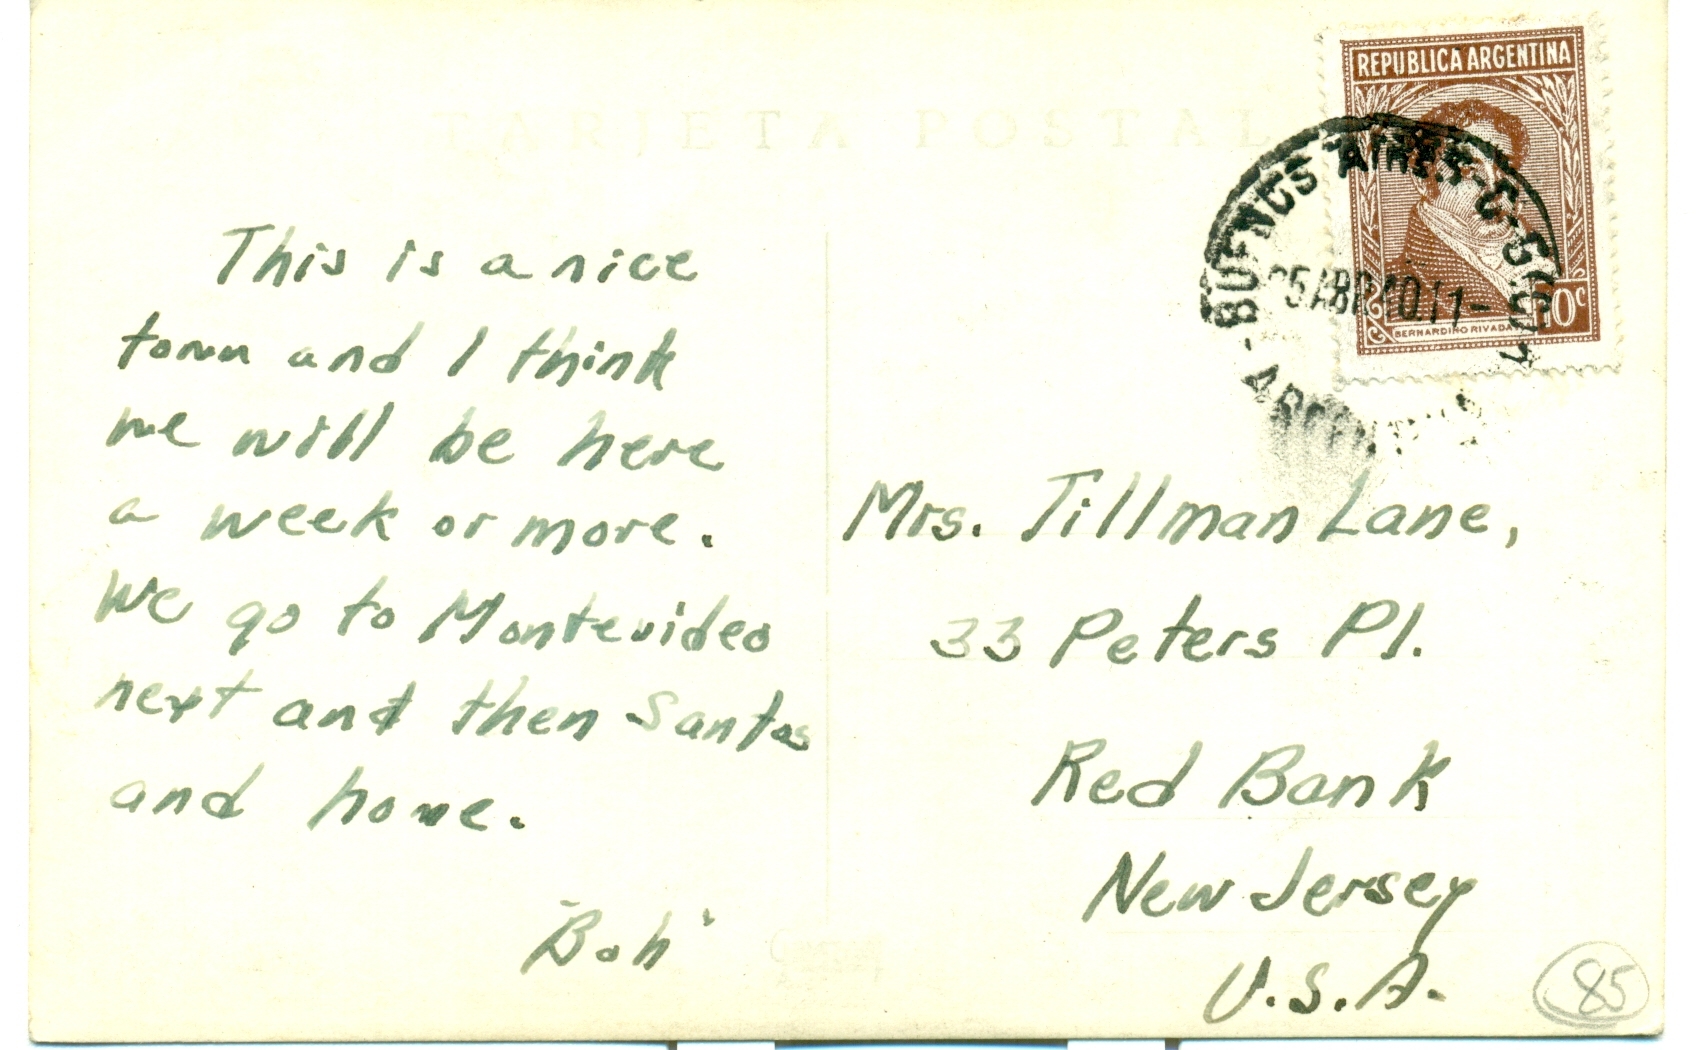 TARJETA POSTAL
REPUBLICA ARGENTINA
10c
BERNARDINO RIVADA
BUENOS AIRES
5 ABR 40.11-
This is a nice
town and I think
we will be here
a week or more.
We go to Montevideo
next and then Santos
and home.
"Bob"
Mrs. Tillman Lane,
33 Peters Pl.
Red Bank
New Jersey
U.S.A.
85